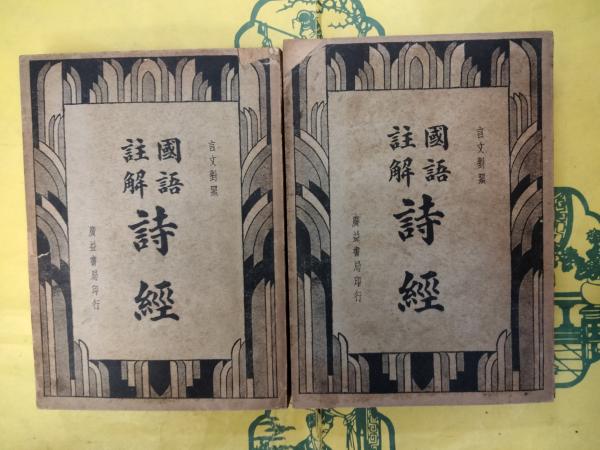 言文對照
國語
註解
詩經
廣益書局印行
言文對照
國語
註解
詩經
廣益書局印行